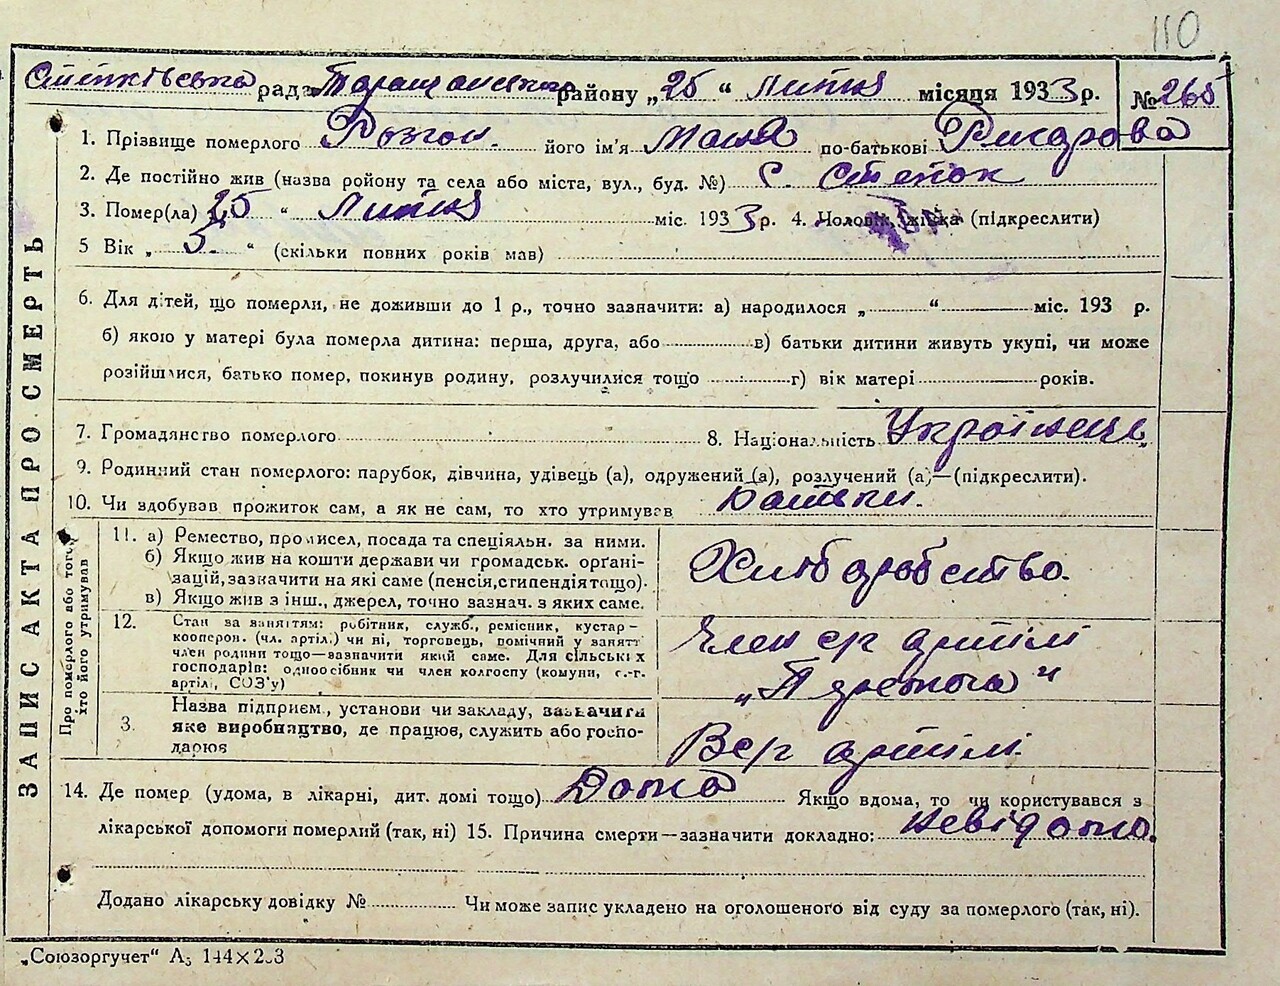 110
Стіпківська рада Таращанського району „25“ Липня місяця 1933 р. № 265
1. Прізвище померлого Розгон. його ім'я Маня по-батькові
2. Де постійно жив (назва ройону та села або міста, вул., буд. №) С. Степок
3. Помер(ла) 25 “ Липня міс. 1933 р. 4. Чоловік, жінка (підкреслити)
5 Вік „ 5. “ (скільки повних років мав)
6. Для дітей, що померли, не доживши до 1 р., точно зазначити: а) народилося „ “ міс. 193 р.
б) якою у матері була померла дитина: перша, друга, або в) батьки дитини живуть укупі, чи може
розійшлися, батько помер, покинув родину, розлучилися тощо г) вік матері років.
7. Громадянство померлого 8. Національність Українець
9. Родинний стан померлого: парубок, дівчина, удівець (а), одружений (а), розлучений (а)—(підкреслити).
10. Чи здобував прожиток сам, а як не сам, то хто утримував Батьки.
ЗАПИС АКТА ПРО СМЕРТЬ
Про померлого або того, хто його утримував
11. а) Ремество, промисел, посада та спеціяльн. за ними.
б) Якщо жив на кошти держави чи громадськ. орґані-
зацій, зазначити на які саме (пенсія, стипендія тощо).
в) Якщо жив з інш., джерел, точно зазнач. з яких саме.
Хліборобство.
12. Стан за заняттям: робітник, служб., ремісник, кустар-
кооперов. (чл. артіл.) чи ні, торговець, помічний у занятт
член родини тощо—зазначити який саме. Для сільських
господарів: одноосібник чи член колгоспу (комуни, с.-г.
артілі, СОЗ'у)
Член с/г артілі
„Перемога“
3. Назва підприєм., установи чи закладу, зазначити
яке виробництво, де працює, служить або госпо-
дарює
В с/г артілі
14. Де помер (удома, в лікарні, дит. домі тощо) Дома Якщо вдома, то чи користувався з
лікарської допомоги померлий (так, ні) 15. Причина смерти—зазначити докладно: невідомо.
Додано лікарську довідку № Чи може запис укладено на оголошеного від суду за померлого (так, ні).
„Союзоргучет“ А₅ 144×203